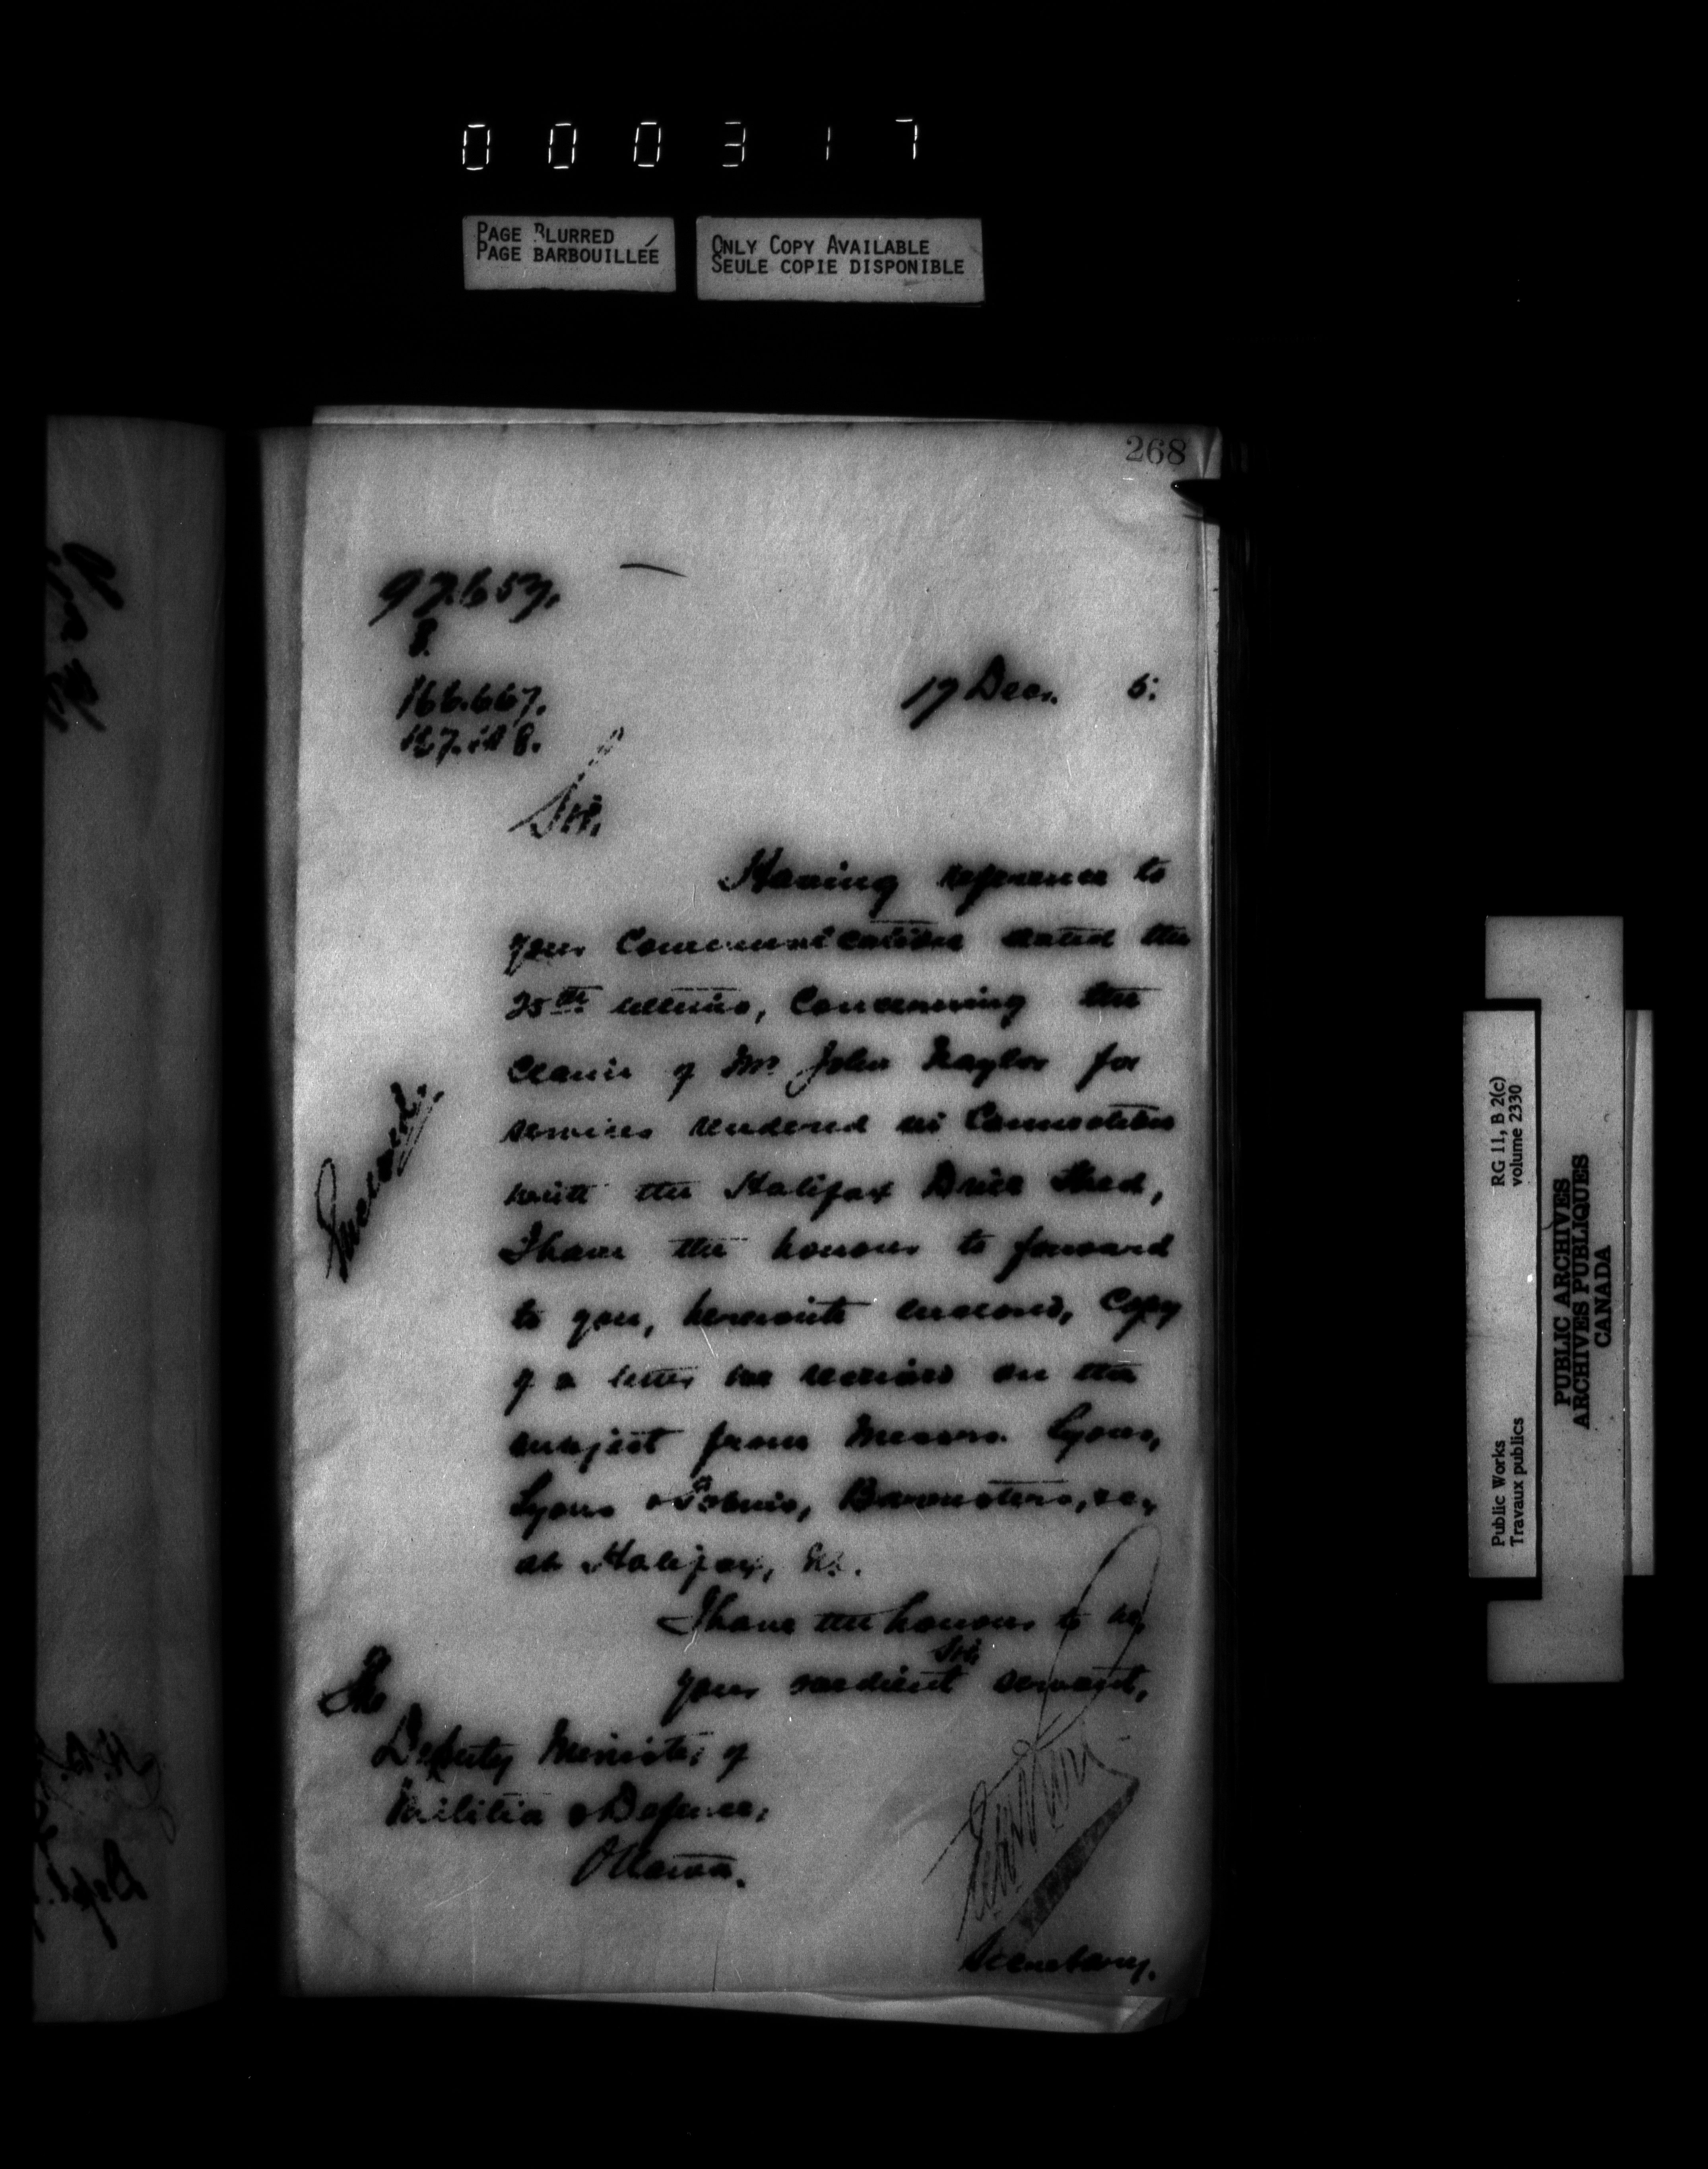 000317
PAGE BLURRED
PAGE BARBOUILLÉE
ONLY COPY AVAILABLE
SEULE COPIE DISPONIBLE
268
97.657.
8.
166.667.
17 Decr. 5.
Sir,
Having reference to
your Communication dated the
25th ultimo, Concerning the
Claim of Mr. John Naylor for
services rendered in Connection
with the Halifax Drill Shed,
I have the honour to forward
to you, herewith enclosed, Copy
of a letter received on the
subject from Messrs. Lyons,
Lyons & Barristers, &c,
at Halifax, N.S.
I have the honour to be,
Sir,
Your obedient servant,
The
Deputy Minister of
Militia & Defence,
Ottawa.
Secretary.
RG 11, B 2(c)
volume 2330
Public Works
Travaux publics
PUBLIC ARCHIVES
ARCHIVES PUBLIQUES
CANADA